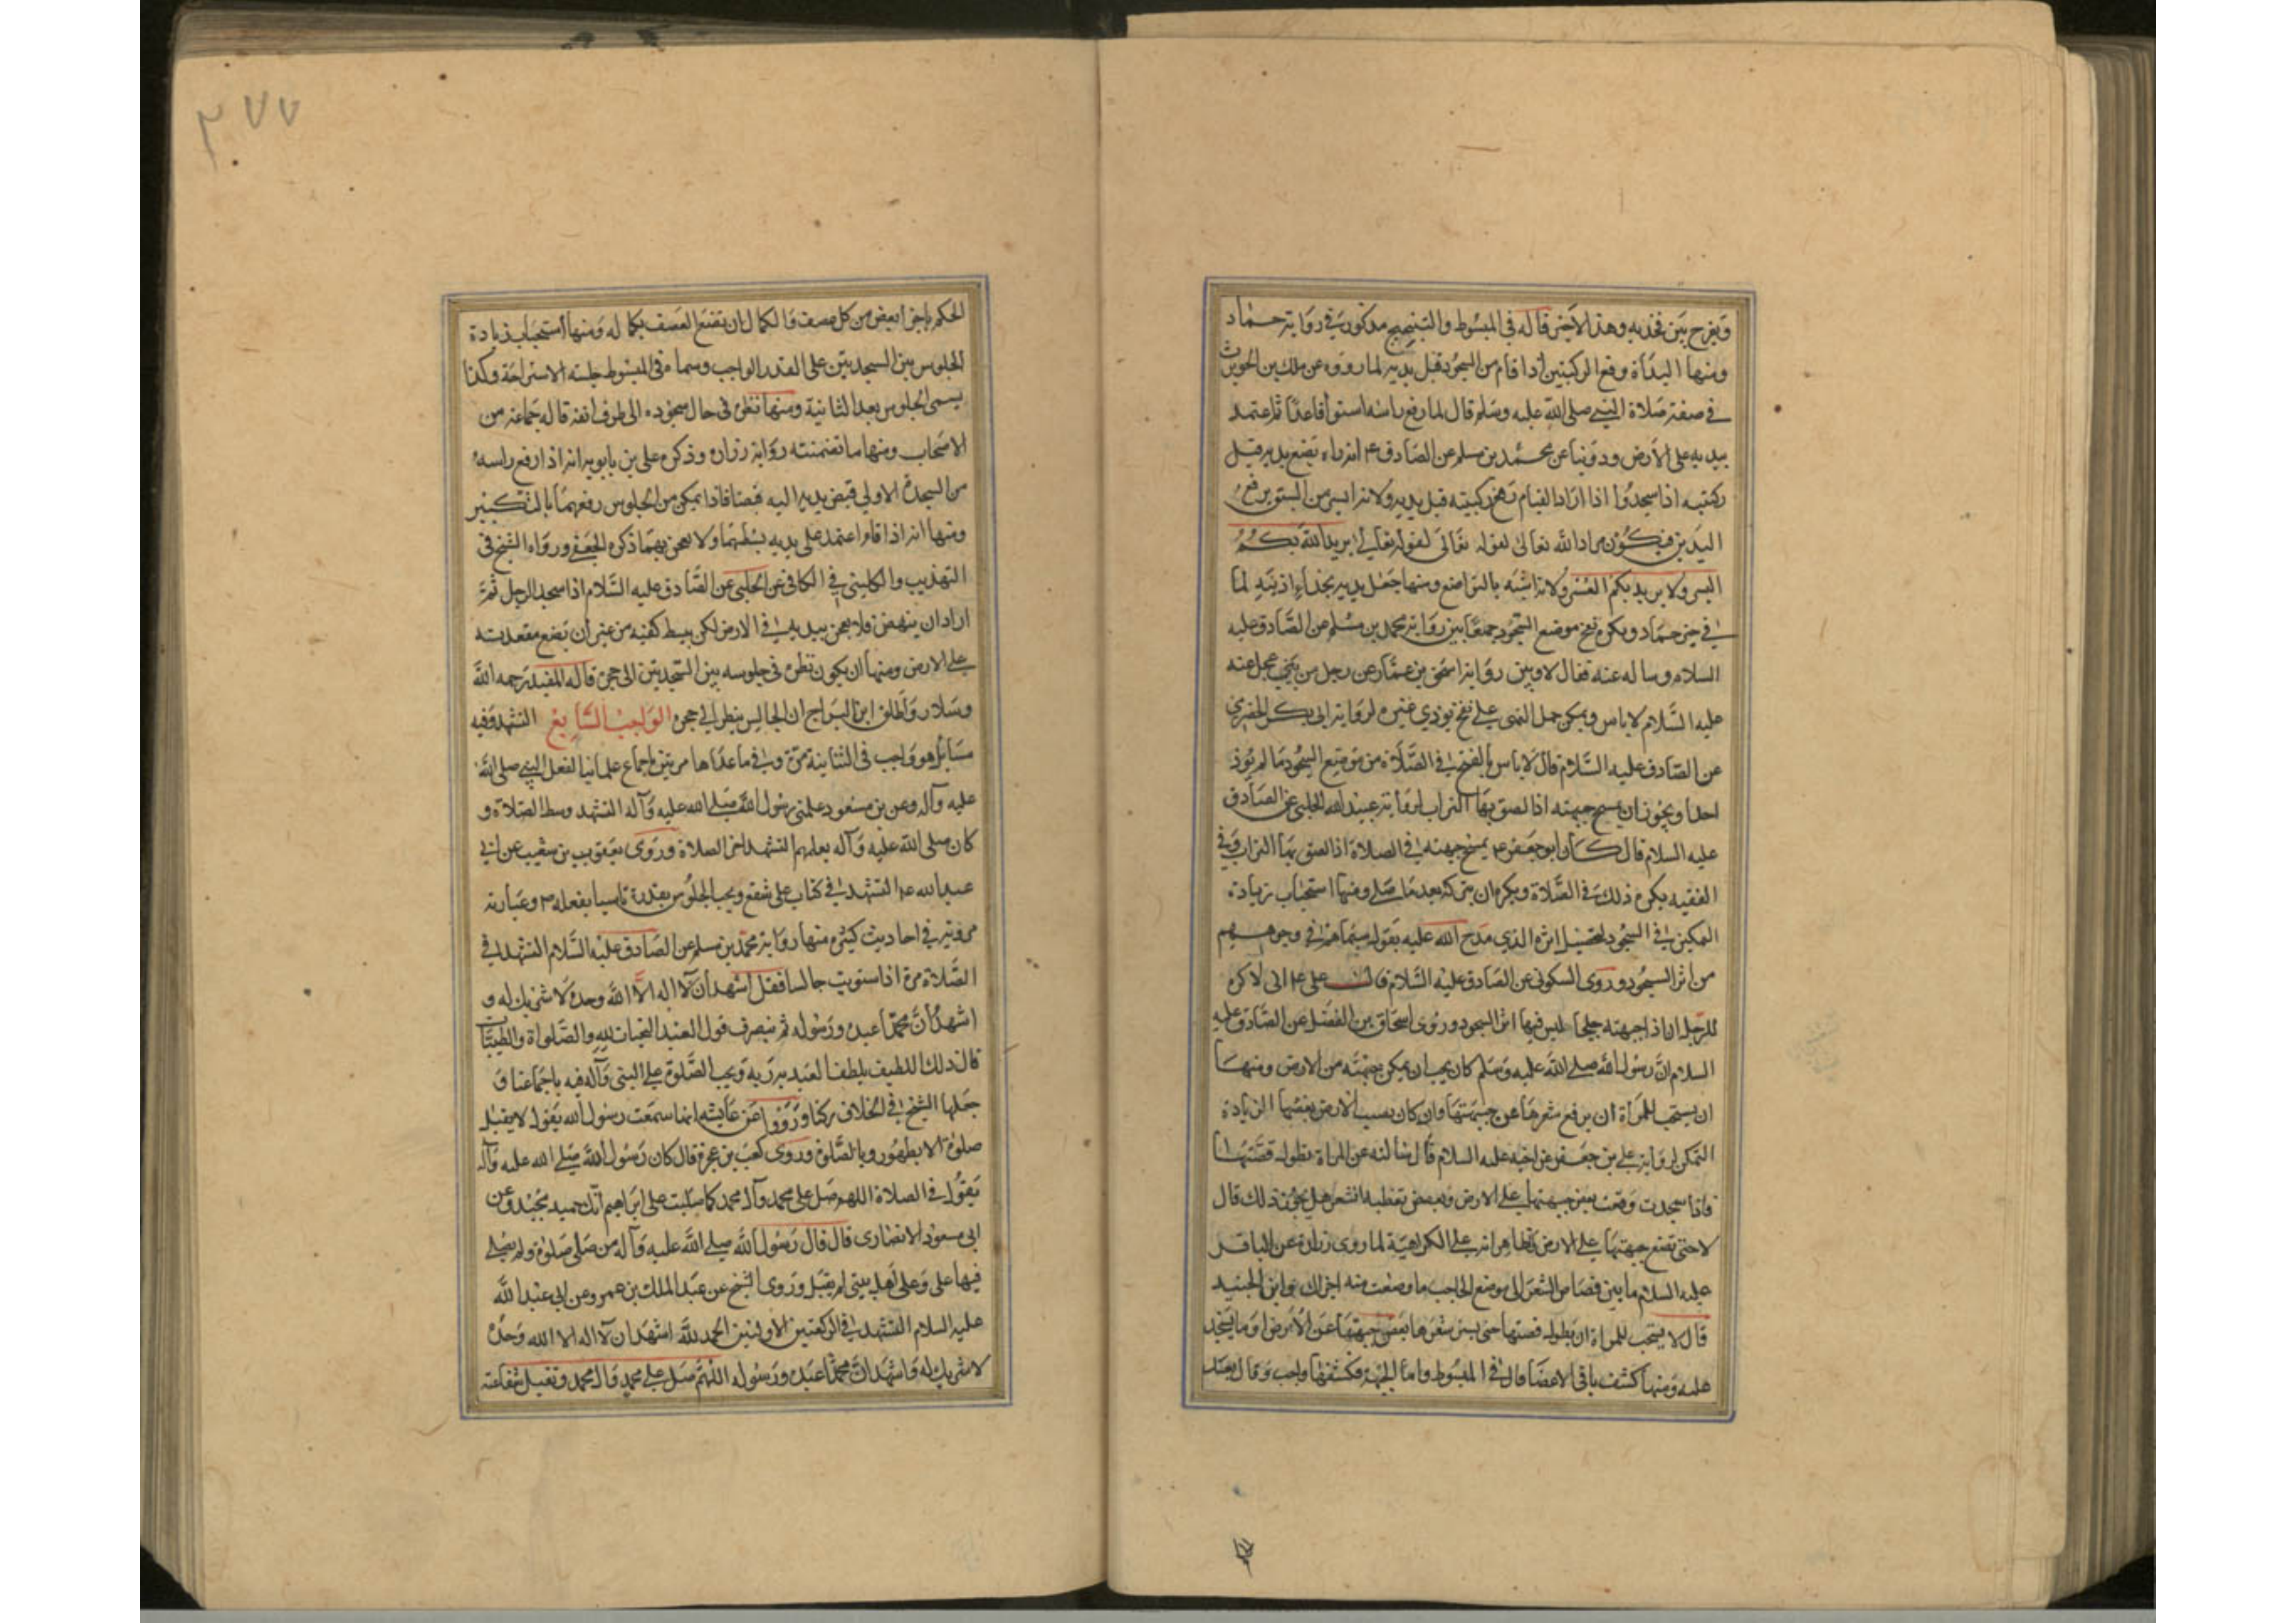 ويفرج بين فخذيه وهذا الاخير قاله في المبسوط والتفريج مذكور في رواية حماد
ومنها البدأة برفع الركبتين اذا قام من السجود قبل يديه لما رووه عن ملك بن الحويرث
في صفة صلاة النبي صلى الله عليه وسلم قال لما رفع راسه استوى قاعدا ثم اعتمد
بيديه على الارض وروينا عن محمد بن مسلم عن الصادق ع انه راه يضع يديه قبل
ركبتيه اذا سجد واذا اراد القيام رفع ركبتيه قبل يديه ولانه ايسر من رفع
اليدين فيكون مراد الله تعالى لقوله تعالى يريد الله بكم
اليسر ولا يريد بكم العسر ولانه اشبه بالتواضع ومنها جعل يديه بحذاء اذنيه لما
في خبر حماد ويكره نفخ موضع السجود جمعا بين رواية محمد بن مسلم عن الصادق عليه
السلام وساله عنه فقال لا وبين رواية اسحق بن عمار عن رجل من بني عجل عنه
عليه السلام لا باس ويمكن حمل النهي على نفخ يوذي غيره لرواية ابي بكر الحضرمي
عن الصادق عليه السلام قال لا باس بالنفخ في الصلاة من موضع السجود ما لم يوذ
احدا ويجوز ان يمسح جبهته اذا لصق بها التراب لرواية عبيد الله الحلبي عن الصادق
عليه السلام قال كان ابو جعفر ع يمسح جبهته في الصلاة اذا لصق بها التراب وفي
الفقيه يكره ذلك في الصلاة ويكره ان يتركه بعد ما صلى ومنها استحباب زيادة
التمكين في السجود لتحصيل اثره الذي مدح الله عليه بقوله سيماهم في وجوههم
من اثر السجود وروى السكوني عن الصادق عليه السلام قال قال علي ع اني لاكره
للرجل ان ارى جبهته جلحا ليس فيها اثر السجود وروى اسحاق بن الفضل عن الصادق عليه
السلام ان رسول الله صلى الله عليه وسلم كان يحب ان يمكن جبهته من الارض ومنها
ان يستحب للمرأة ان يرفع شعرها عن جبهتها وان كان يصيب الارض بعضها الزيادة
التمكن لرواية علي بن جعفر عن اخيه عليه السلام قال سالته عن المراة تطول قصتها
فاذا سجدت وقعت بعض جبهتها على الارض وبعض تغطيه الشعر هل يجوز ذلك قال
لا حتى تضع جبهتها على الارض والظاهر انه على الكراهية لما روى زرارة عن الباقر
عليه السلام ما بين قصاص الشعر الى موضع الحاجب ما وضعت منه اجزاك وابن الجنيد
قال لا يستحب للمراة ان تطول قصتها حتى يستر شعرها بعض جبهتها عن الارض او ما يسجد
عليه ومنها كشف باقي الاعضا قال في المبسوط واما الجبهة فكشفها واجب وقال بعد
٣٧٧
الحكم باجزا بعض من كل عضو والكمال ان تضع العضو بكماله ومنها استحباب زيادة
الجلوس بين السجدتين على القدر الواجب وسماه في المبسوط جلسة الاستراحة وكذا
يسمى الجلوس بعد الثانية ومنها نظره في حال سجوده الى طرف انفه قاله جماعة من
الاصحاب ومنها ما تضمنته رواية زرارة وذكره علي بن بابويه انه اذا رفع راسه
من السجدة الاولى قبض يديه اليه قبضا فاذا تمكن من الجلوس رفعهما بالتكبير
ومنها انه اذا قام اعتمد على يديه بسطهما ولا يعجن بهما ذكره الجعفي ورواه الشيخ في
التهذيب والكليني في الكافي عن الحلبي عن الصادق عليه السلام اذا سجد الرجل ثم
اراد ان ينهض فلا يعجن بيديه في الارض لكن يبسط كفيه من غير ان يضع مقعدته
على الارض ومنها ان يكون نظره في جلوسه بين السجدتين الى حجره قاله المفيد رحمه الله
وسلار واطلق ابن البراج ان الجالس ينظر الى حجره الواجب السابع التشهد وفيه
مسايل هو واجب في الثنائية مرة وفي ما عداها مرتين باجماع علمائنا لفعل النبي صلى الله
عليه وآله وعن بن مسعود علمني رسول الله صلى الله عليه وآله التشهد وسط الصلاة و
كان صلى الله عليه وآله يعلمهم التشهد اخر الصلاة وروى يعقوب بن شعيب عن ابي
عبد الله ع التشهد في كتاب علي شفع ويجب الجلوس بقدره تاسيا بفعله ص وعبارته
مروية في احاديث كثيرة منها رواية محمد بن مسلم عن الصادق عليه السلام التشهد في
الصلاة مرة اذا استويت جالسا فقل اشهد ان لا اله الا الله وحده لا شريك له و
اشهد ان محمدا عبده ورسوله ثم ينصرف قول العبد التحيات لله والصلواة والطيبات
قال ذلك اللطيف يلطف العبد بربه ويجب الصلوة على النبي وآله فيه باجماعنا و
جعلها الشيخ في الخلاف ركنا ورووا عن عايشة انها سمعت رسول الله يقول لا يقبل
صلوة الا بطهور وبالصلوة وروى كعب بن عجرة قال كان رسول الله صلى الله عليه وآله
يقول في الصلاة اللهم صل على محمد وآل محمد كما صليت على ابراهيم انك حميد مجيد وعن
ابي مسعود الانصاري قال قال رسول الله صلى الله عليه وآله من صلى صلوة ولم يصل
فيها علي وعلى اهل بيتي لم يقبل وروى الشيخ عن عبد الملك بن عمرو عن ابي عبد الله
عليه السلام التشهد في الركعتين الاولتين الحمد لله اشهد ان لا اله الا الله وحده
لا شريك له واشهد ان محمدا عبده ورسوله اللهم صل على محمد وال محمد وتقبل شفاعته